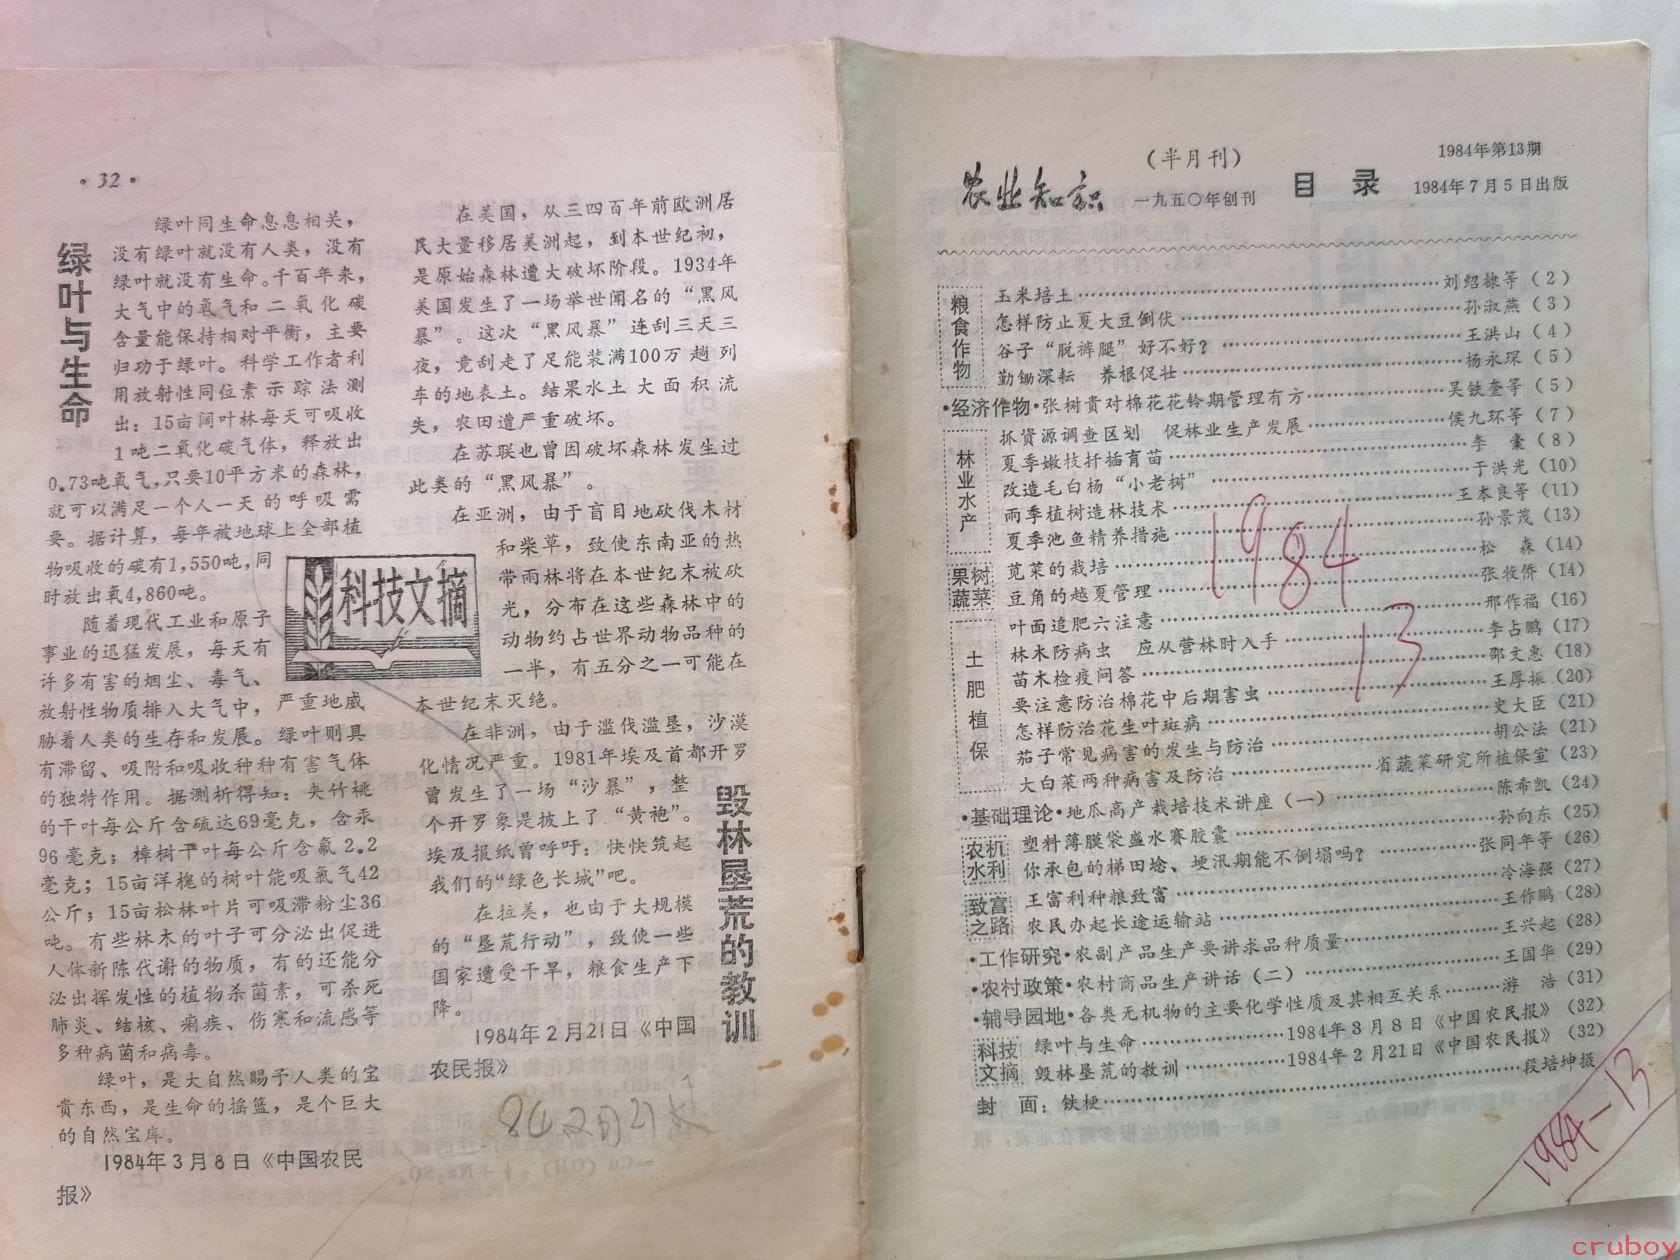 ·32·
绿叶与生命
绿叶同生命息息相关，
没有绿叶就没有人类，没有
绿叶就没有生命。千百年来，
大气中的氧气和二氧化碳
含量能保持相对平衡，主要
归功于绿叶。科学工作者利
用放射性同位素示踪法测
出：15亩阔叶林每天可吸收
1吨二氧化碳气体，释放出
0.73吨氧气，只要10平方米的森林，
就可以满足一个人一天的呼吸需
要。据计算，每年被地球上全部植
物吸收的碳有1,550吨，同
时放出氧4,860吨。
随着现代工业和原子
事业的迅猛发展，每天有
许多有害的烟尘、毒气、
放射性物质排入大气中，严重地威
胁着人类的生存和发展。绿叶则具
有滞留、吸附和吸收种种有害气体
的独特作用。据测析得知：夹竹桃
的干叶每公斤含硫达69毫克，含汞
96毫克；樟树干叶每公斤含氟2.2
毫克；15亩洋槐的树叶能吸氯气42
公斤；15亩松林叶片可吸滞粉尘36
吨。有些林木的叶子可分泌出促进
人体新陈代谢的物质，有的还能分
泌出挥发性的植物杀菌素，可杀死
肺炎、结核、痢疾、伤寒和流感等
多种病菌和病毒。
绿叶，是大自然赐予人类的宝
贵东西，是生命的摇篮，是个巨大
的自然宝库。
1984年3月8日《中国农民
报》
科技文摘
在美国，从三四百年前欧洲居
民大量移居美洲起，到本世纪初，
是原始森林遭大破坏阶段。1934年
美国发生了一场举世闻名的“黑风
暴”。这次“黑风暴”连刮三天三
夜，竟刮走了足能装满100万趟列
车的地表土。结果水土大面积流
失，农田遭严重破坏。
在苏联也曾因破坏森林发生过
此类的“黑风暴”。
在亚洲，由于盲目地砍伐木材
和柴草，致使东南亚的热
带雨林将在本世纪末被砍
光，分布在这些森林中的
动物约占世界动物品种的
一半，有五分之一可能在
本世纪末灭绝。
在非洲，由于滥伐滥垦，沙漠
化情况严重。1981年埃及首都开罗
曾发生了一场“沙暴”，整
个开罗象是披上了“黄袍”。
埃及报纸曾呼吁：快快筑起
我们的“绿色长城”吧。
在拉美，也由于大规模
的“垦荒行动”，致使一些
国家遭受干旱，粮食生产下
降。
1984年2月21日《中国
农民报》
毁林垦荒的教训
农业知识
（半月刊）
一九五〇年创刊
目 录
1984年第13期
1984年7月5日出版
粮食作物
玉米培土……刘绍棣等（2）
怎样防止夏大豆倒伏……孙淑燕（3）
谷子“脱裤腿”好不好？……王洪山（4）
勤锄深耘 养根促壮……杨永琛（5）
·经济作物·张树贵对棉花花铃期管理有方……吴铁奎等（5）
林业水产
抓资源调查区划 促林业生产发展……侯九环等（7）
夏季嫩枝扦插育苗……李 橐（8）
改造毛白杨“小老树”……于洪光（10）
雨季植树造林技术……王本良等（11）
夏季池鱼精养措施……孙景茂（13）
果树蔬菜
苋菜的栽培……松 森（14）
豆角的越夏管理……张牧侨（14）
土肥植保
叶面追肥六注意……邢作福（16）
林木防病虫 应从营林时入手……李占鹏（17）
苗木检疫问答……邵文惠（18）
要注意防治棉花中后期害虫……王厚振（20）
怎样防治花生叶斑病……史大臣（21）
茄子常见病害的发生与防治……胡公法（21）
大白菜两种病害及防治……省蔬菜研究所植保室（23）
·基础理论·地瓜高产栽培技术讲座（一）……陈希凯（24）
农机水利
塑料薄膜袋盛水赛胶囊……孙向东（25）
你承包的梯田埝、埂汛期能不倒塌吗？……张同年等（26）
致富之路
王富利种粮致富……冷海强（27）
农民办起长途运输站……王作鹏（28）
·工作研究·农副产品生产要讲求品种质量……王兴起（28）
·农村政策·农村商品生产讲话（二）……王国华（29）
·辅导园地·各类无机物的主要化学性质及其相互关系……游 浩（31）
科技文摘
绿叶与生命……1984年3月8日《中国农民报》（32）
毁林垦荒的教训……1984年2月21日《中国农民报》（32）
封 面：铁梗……段培坤摄
1984
13
1984-13
cruboy